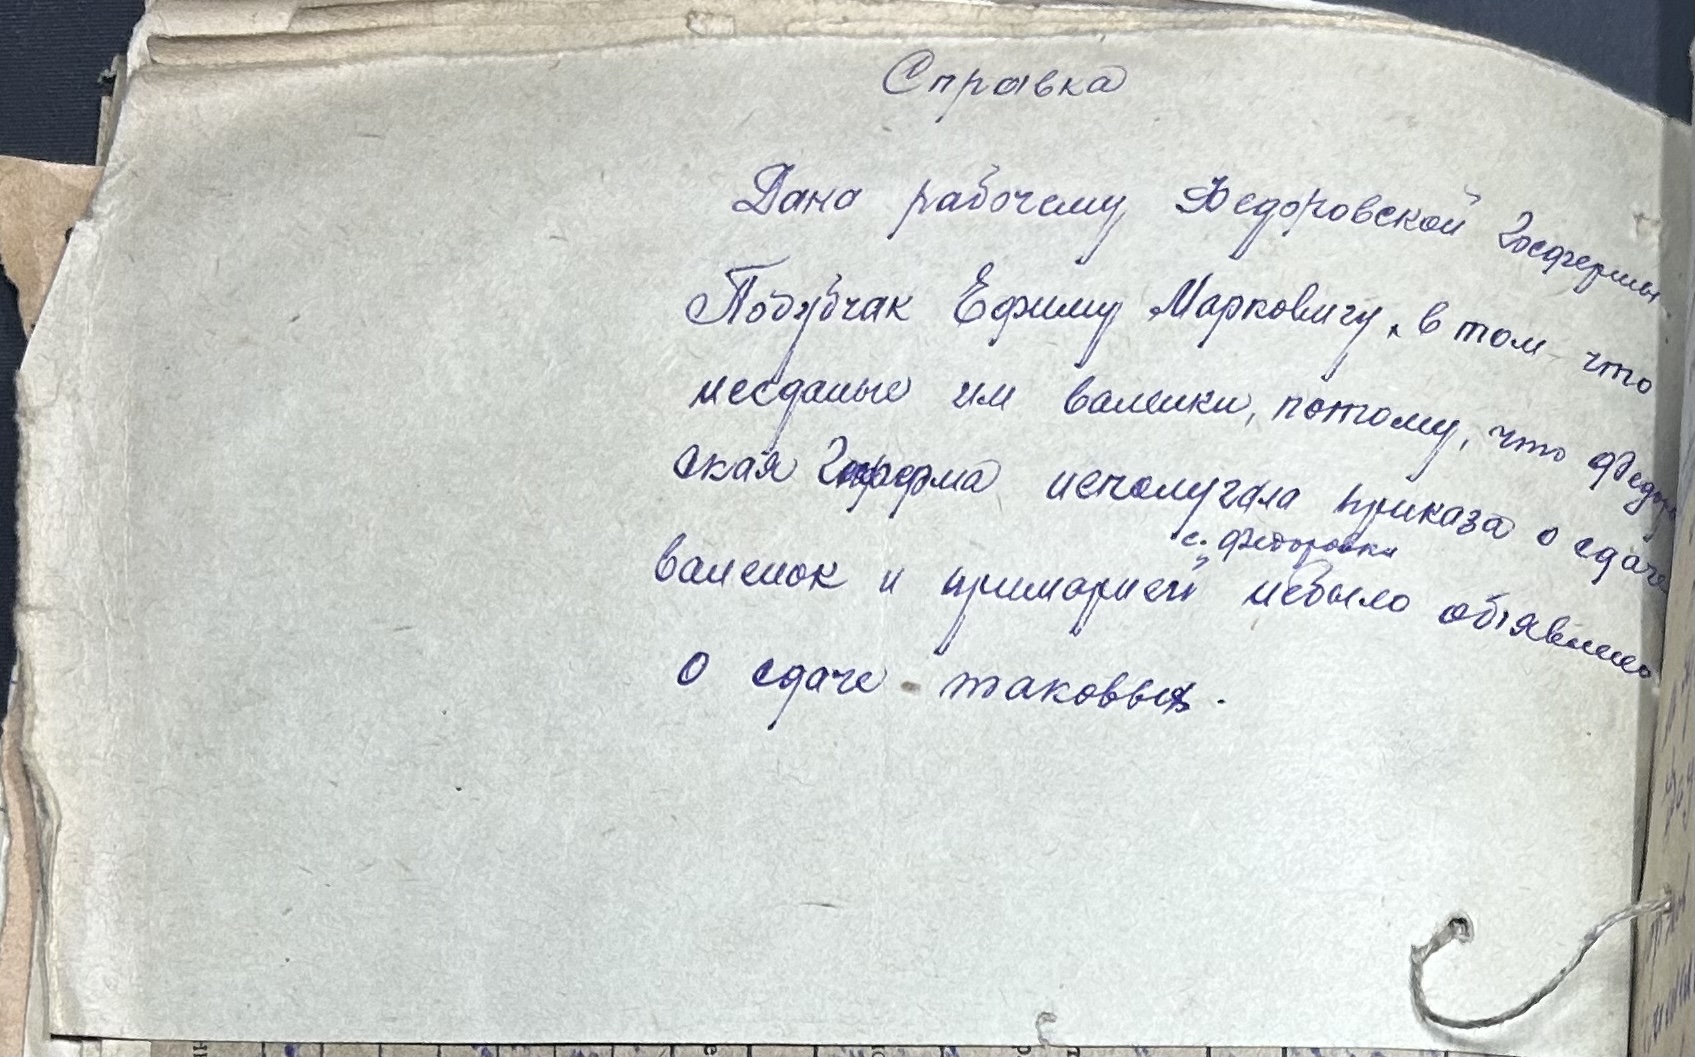 Справка
Дана рабочему Федоровской Госфермы
Побубчак Ефиму Марковичу, в том что
несданые им валенки, потому, что Федоров
ская Госферма неполучала приказа о сдаче
с. Федоровки
валенок и примарией небыло обявлено
о сдаче таковых.